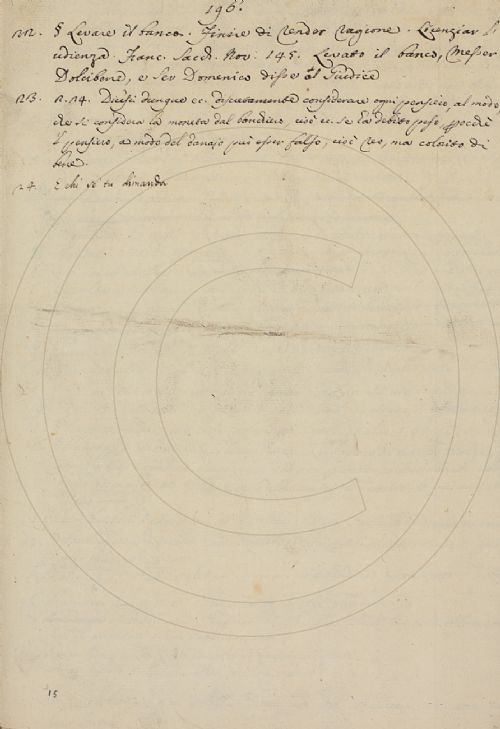 196.
22. § Levare il banco. Finire di render ragione. Licenziar l'
udienza. Franc. Sacch. Nov. 145. Levato il banco, Messer
Dolcibene, e Ser Domenico disse al Giudice
23. n. 24. Dicesi dunque ec. discretamente considerare ogni pensiero, al modo
che si considera la moneta dal cioè ec. se ha debito peso, perchè
il pensiero, a modo del danaio può esser falso, cioè reo, ma colorito di
bene.
24. e chi se' tu dimanda
15